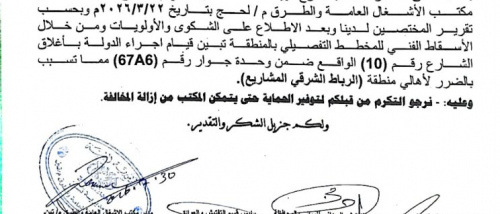 مكتب الأشغال العامة والطرق م / لحج بتاريخ ٢٠٢٦/٣/٢٢م وبحسب
تقرير المختصين لدينا وبعد الاطلاع على الشكوى والأولويات ومن خلال
الأسقاط الفني للمخطط التفصيلي بالمنطقة تبين قيام اجراء الدولة بأغلاق
الشارع رقم (10) الواقع ضمن وحدة جوار رقم (67A6) مما تسبب
بالضرر لأهالي منطقة (الرباط الشرقي المشاريع).
وعليه :- نرجو التكرم من قبلكم لتوفير الحماية حتى يتمكن المكتب من إزالة المخالفة.
ولكم جزيل الشكر والتقدير.